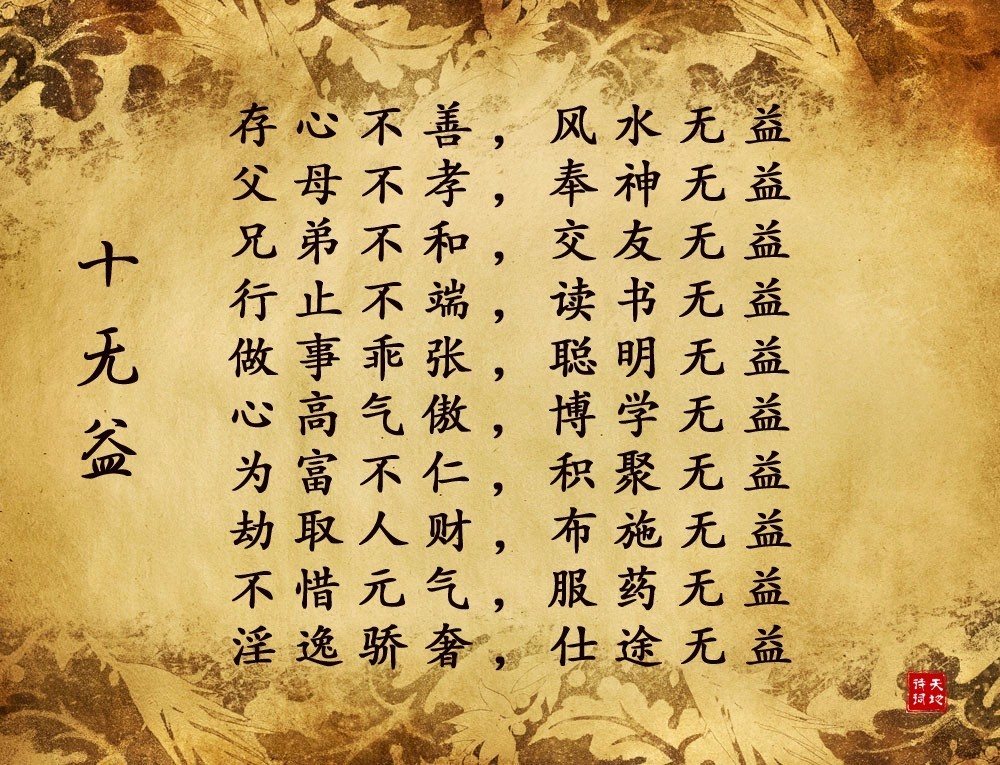 十无益
存心不善，风水无益
父母不孝，奉神无益
兄弟不和，交友无益
行止不端，读书无益
做事乖张，聪明无益
心高气傲，博学无益
为富不仁，积聚无益
劫取人财，布施无益
不惜元气，服药无益
淫逸骄奢，仕途无益
天地
诗词